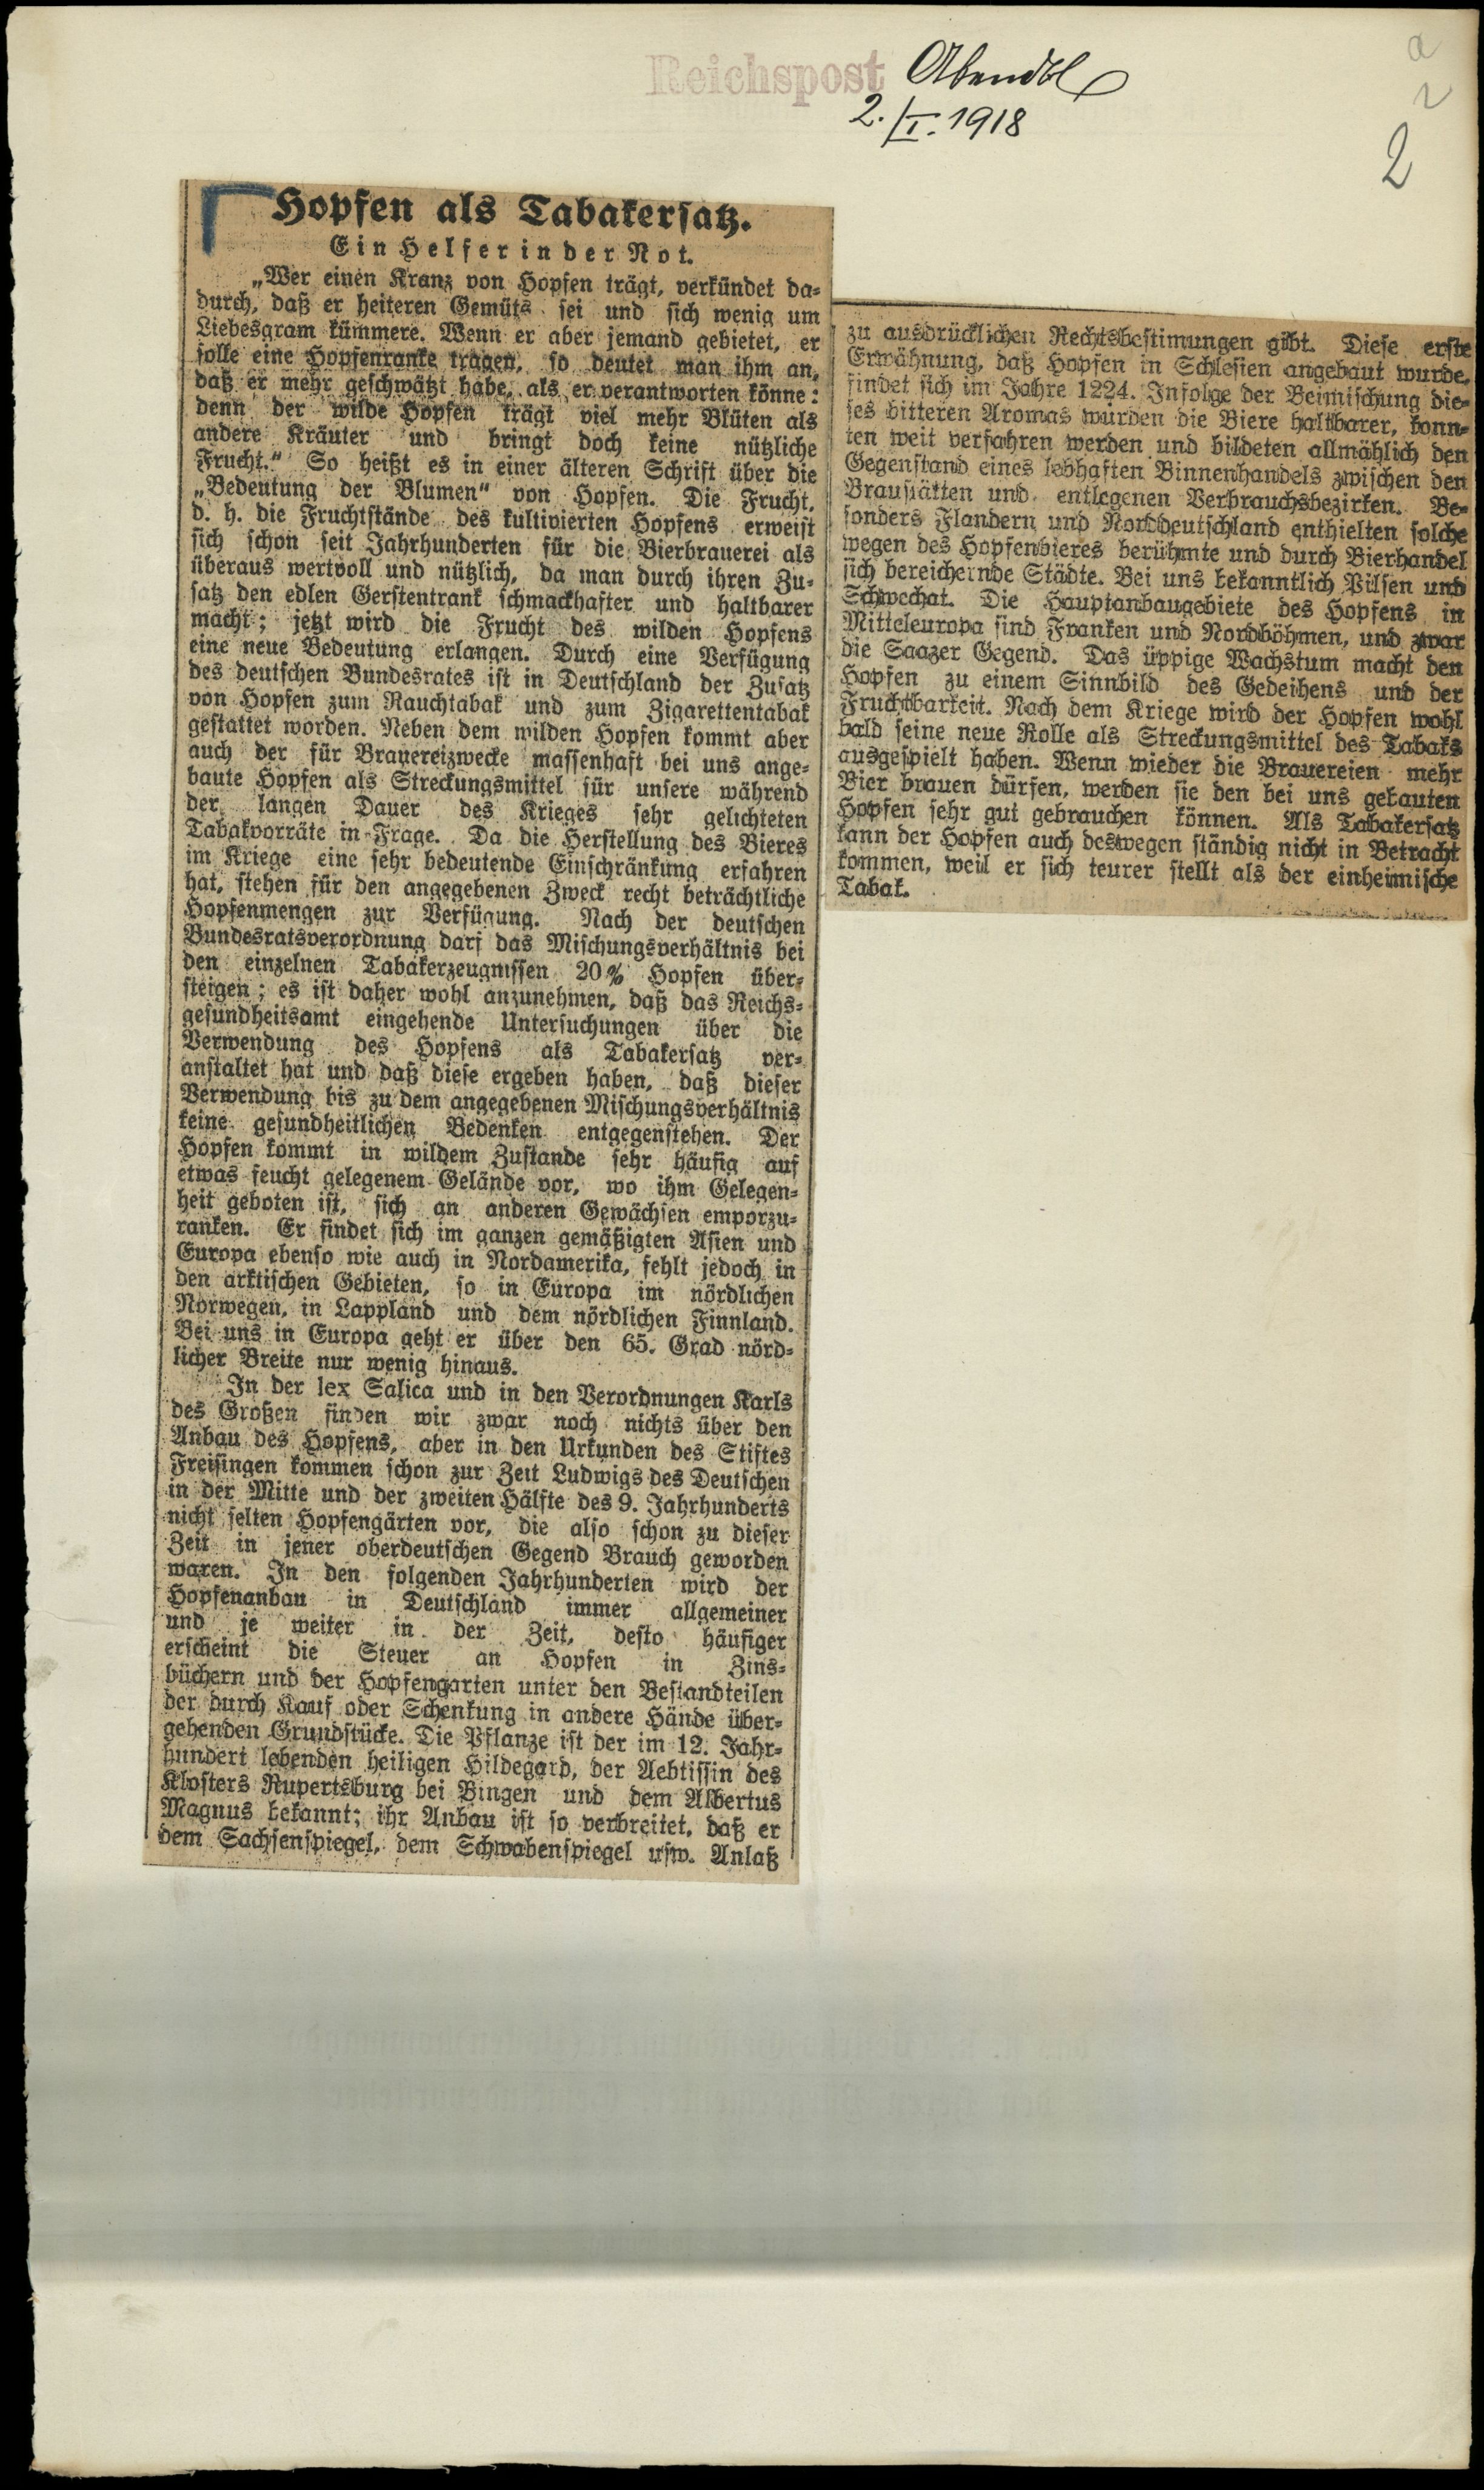 Reichspost Abendbl
2./I. 1918
a
2
2
Hopfen als Tabakersatz.
Ein Helfer in der Not.
„Wer einen Kranz von Hopfen trägt, verkündet da-
durch, daß er heiteren Gemüts sei und sich wenig um
Liebesgram kümmere. Wenn er aber jemand gebietet, er
solle eine Hopfenranke tragen, so deutet man ihm an,
daß er mehr geschwätzt habe, als er verantworten könne:
denn der wilde Hopfen trägt viel mehr Blüten als
andere Kräuter und bringt doch keine nützliche
Frucht.“ So heißt es in einer älteren Schrift über die
„Bedeutung der Blumen“ von Hopfen. Die Frucht,
d. h. die Fruchtstände des kultivierten Hopfens erweist
sich schon seit Jahrhunderten für die Bierbrauerei als
überaus wertvoll und nützlich, da man durch ihren Zu-
satz den edlen Gerstentrank schmackhafter und haltbarer
macht; jetzt wird die Frucht des wilden Hopfens
eine neue Bedeutung erlangen. Durch eine Verfügung
des deutschen Bundesrates ist in Deutschland der Zusatz
von Hopfen zum Rauchtabak und zum Zigarettentabak
gestattet worden. Neben dem wilden Hopfen kommt aber
auch der für Brauereizwecke massenhaft bei uns ange-
baute Hopfen als Streckungsmittel für unsere während
der langen Dauer des Krieges sehr gelichteten
Tabakvorräte in Frage. Da die Herstellung des Bieres
im Kriege eine sehr bedeutende Einschränkung erfahren
hat, stehen für den angegebenen Zweck recht beträchtliche
Hopfenmengen zur Verfügung. Nach der deutschen
Bundesratsverordnung darf das Mischungsverhältnis bei
den einzelnen Tabakerzeugnissen 20% Hopfen über-
steigen; es ist daher wohl anzunehmen, daß das Reichs-
gesundheitsamt eingehende Untersuchungen über die
Verwendung des Hopfens als Tabakersatz ver-
anstaltet hat und daß diese ergeben haben, daß dieser
Verwendung bis zu dem angegebenen Mischungsverhältnis
keine gesundheitlichen Bedenken entgegenstehen. Der
Hopfen kommt in wildem Zustande sehr häufig auf
etwas feucht gelegenem Gelände vor, wo ihm Gelegen-
heit geboten ist, sich an anderen Gewächsen emporzu-
ranken. Er findet sich im ganzen gemäßigten Asien und
Europa ebenso wie auch in Nordamerika, fehlt jedoch in
den arktischen Gebieten, so in Europa im nördlichen
Norwegen, in Lappland und dem nördlichen Finnland.
Bei uns in Europa geht er über den 65. Grad nörd-
licher Breite nur wenig hinaus.
In der lex Salica und in den Verordnungen Karls
des Großen finden wir zwar noch nichts über den
Anbau des Hopfens, aber in den Urkunden des Stiftes
Freisingen kommen schon zur Zeit Ludwigs des Deutschen
in der Mitte und der zweiten Hälfte des 9. Jahrhunderts
nicht selten Hopfengärten vor, die also schon zu dieser
Zeit in jener oberdeutschen Gegend Brauch geworden
waren. In den folgenden Jahrhunderten wird der
Hopfenanbau in Deutschland immer allgemeiner
und je weiter in der Zeit, desto häufiger
erscheint die Steuer an Hopfen in Zins-
büchern und der Hopfengarten unter den Bestandteilen
der durch Kauf oder Schenkung in andere Hände über-
gehenden Grundstücke. Die Pflanze ist der im 12. Jahr-
hundert lebenden heiligen Hildegard, der Aebtissin des
Klosters Rupertsburg bei Bingen und dem Albertus
Magnus bekannt; ihr Anbau ist so verbreitet, daß er
dem Sachsenspiegel, dem Schwabenspiegel usw. Anlaß
zu ausdrücklichen Rechtsbestimungen gibt. Diese erste
Erwähnung, daß Hopfen in Schlesien angebaut wurde,
findet sich im Jahre 1224. Infolge der Beimischung die-
ses bitteren Aromas wurden die Biere haltbarer, konn-
ten weit verfahren werden und bildeten allmählich den
Gegenstand eines lebhaften Binnenhandels zwischen den
Braustätten und entlegenen Verbrauchsbezirken. Be-
sonders Flandern und Norddeutschland enthielten solche
wegen des Hopfenbieres berühmte und durch Bierhandel
sich bereichernde Städte. Bei uns bekanntlich Pilsen und
Schwechat. Die Hauptanbaugebiete des Hopfens in
Mitteleuropa sind Franken und Nordböhmen, und zwar
die Saazer Gegend. Das üppige Wachstum macht den
Hopfen zu einem Sinnbild des Gedeihens und der
Fruchtbarkeit. Nach dem Kriege wird der Hopfen wohl
bald seine neue Rolle als Streckungsmittel des Tabaks
ausgespielt haben. Wenn wieder die Brauereien mehr
Bier brauen dürfen, werden sie den bei uns gebauten
Hopfen sehr gut gebrauchen können. Als Tabakersatz
kann der Hopfen auch deswegen ständig nicht in Betracht
kommen, weil er sich teurer stellt als der einheimische
Tabak.